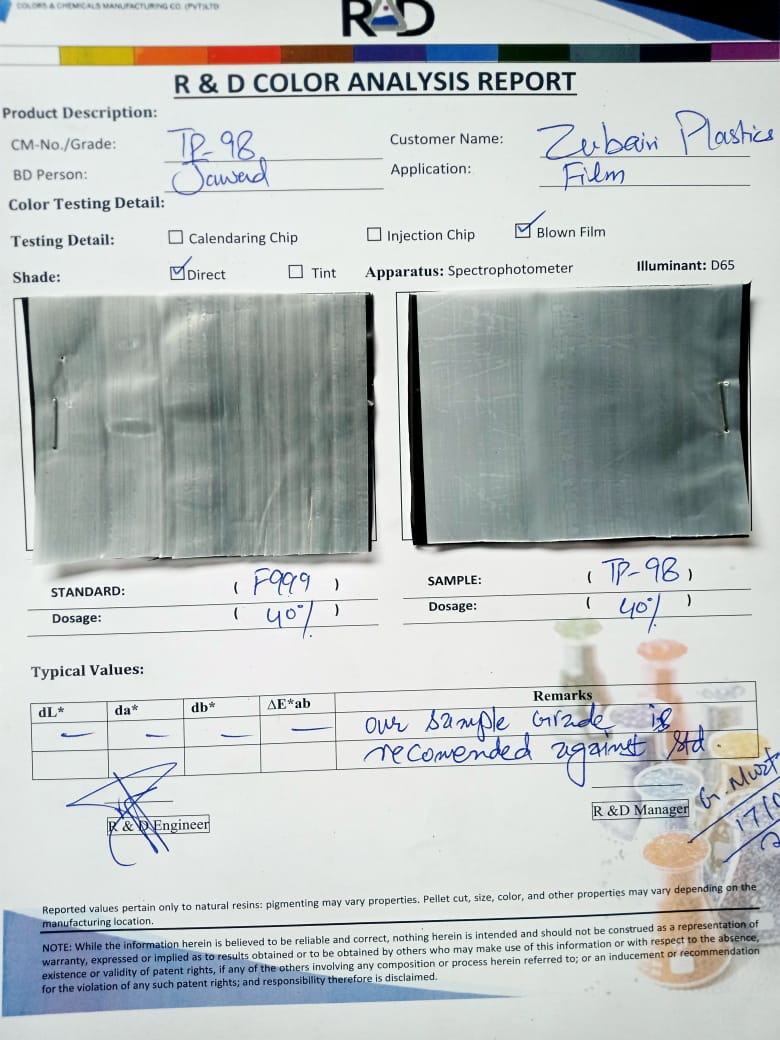 COLORS & CHEMICALS MANUFACTURING CO. (PVT)LTD
R&D
R & D COLOR ANALYSIS REPORT
Product Description:
CM-No./Grade: TP-98
Customer Name: Zubairi Plastics
BD Person: Jawad
Application: Film
Color Testing Detail:
Testing Detail: ☐ Calendaring Chip ☐ Injection Chip ☑ Blown Film
Shade: ☑ Direct ☐ Tint Apparatus: Spectrophotometer Illuminant: D65
STANDARD: ( F999 ) SAMPLE: ( TP-98 )
Dosage: ( 40% ) Dosage: ( 40% )
Typical Values:
dL* da* db* ΔE*ab Remarks
— — — — our sample Grade is
recomended against std.
R & D Engineer
R &D Manager
G. Must
Reported values pertain only to natural resins: pigmenting may vary properties. Pellet cut, size, color, and other properties may vary depending on the
manufacturing location.
NOTE: While the information herein is believed to be reliable and correct, nothing herein is intended and should not be construed as a representation of
warranty, expressed or implied as to results obtained or to be obtained by others who may make use of this information or with respect to the absence,
existence or validity of patent rights, if any of the others involving any composition or process herein referred to; or an inducement or recommendation
for the violation of any such patent rights; and responsibility therefore is disclaimed.